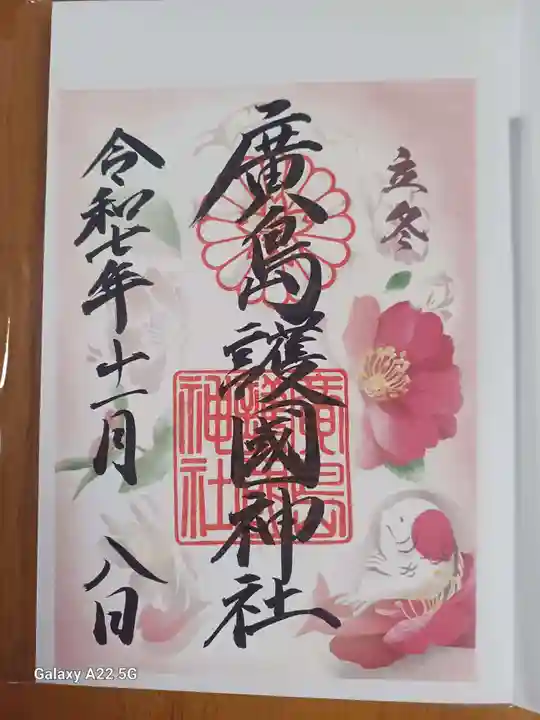 立冬
廣島護國神社
廣島護國神社
令和七年十一月 八日
Galaxy A22 5G